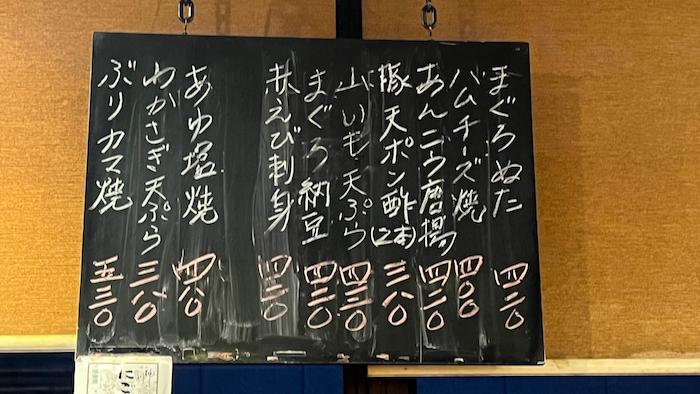 まぐろぬた 四二〇
ハムチーズ焼 四〇〇
あんこう唐揚 四二〇
豚天ポン酢(2本) 三八〇
山いも天ぷら 四三〇
まぐろ納豆 四三〇
赤えび刺身 四三〇
あゆ塩焼 四八〇
わかさぎ天ぷら 三八〇
ぶりカマ焼 五三〇